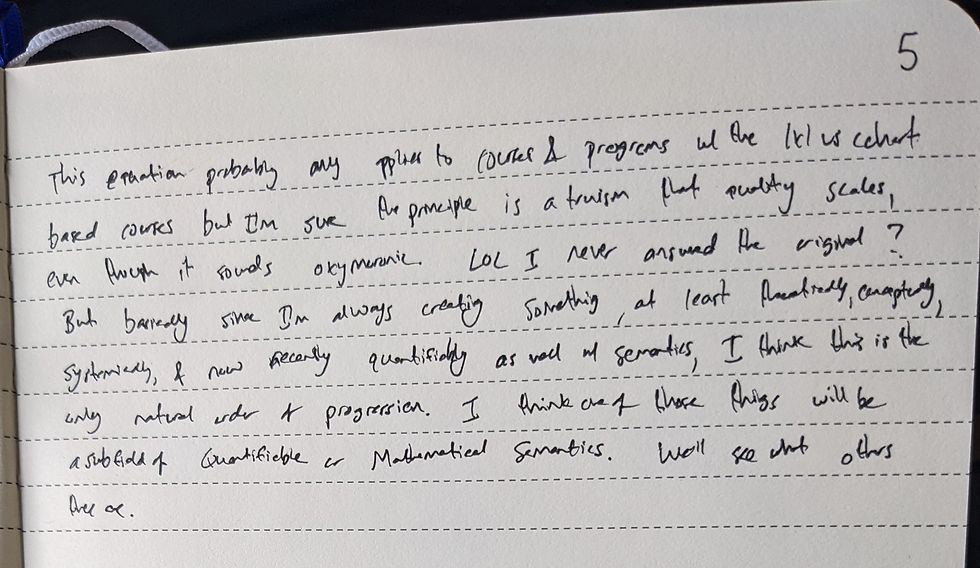 5
This equation probably only applies to courses & programs w/ the 1x1 vs cohort
based courses but I'm sure the principle is a truism that quality scales,
even though it sounds oxymoronic. LOL I never answered the original ?
But basically since I'm always creating something, at least theoretically, conceptually,
systemically, & now recently quantifiably as well w/ semantics, I think this is the
only natural order of progression. I think one of those things will be
a subfield of Quantifiable or Mathematical Semantics. We'll see what others
there are.